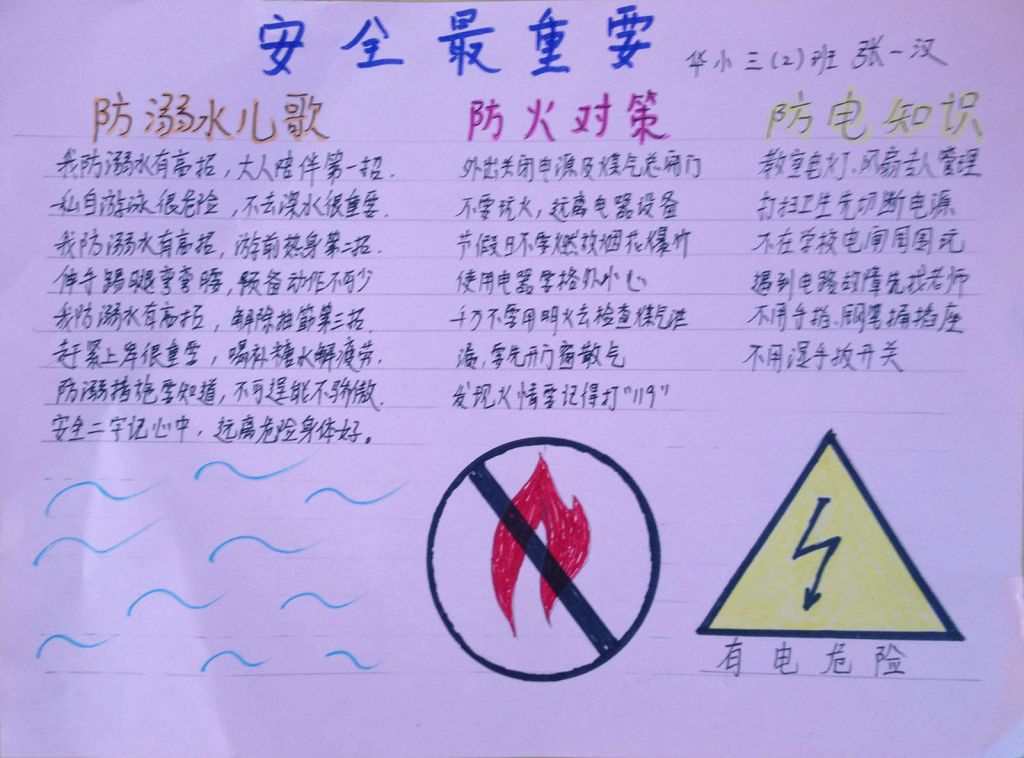 安全最重要
华小三(2)班 张一汉
防溺水儿歌
我防溺水有高招,大人陪伴第一招.
私自游泳很危险,不去深水很重要.
我防溺水有高招,游前热身第二招.
伸手踢腿弯弯腰,预备动作不可少
我防溺水有高招,解除抽筋第三招.
赶紧上岸很重要,喝补糖水解疲劳.
防溺措施要知道,不可逞能不骄傲.
安全二字记心中,远离危险身体好。
防火对策
外出关闭电源及煤气总阀门
不要玩火,远离电器设备
节假日不要燃放烟花爆竹
使用电器要格外小心
千万不要用明火去检查煤气泄
漏,要先开门窗散气
发现火情要记得打“119”
防电知识
教室电灯、风扇专人管理
打扫卫生先切断电源
不在学校电闸周围玩
遇到电路故障先找老师
不用手指、钢笔捅插座
不用湿手拔开关
有电危险